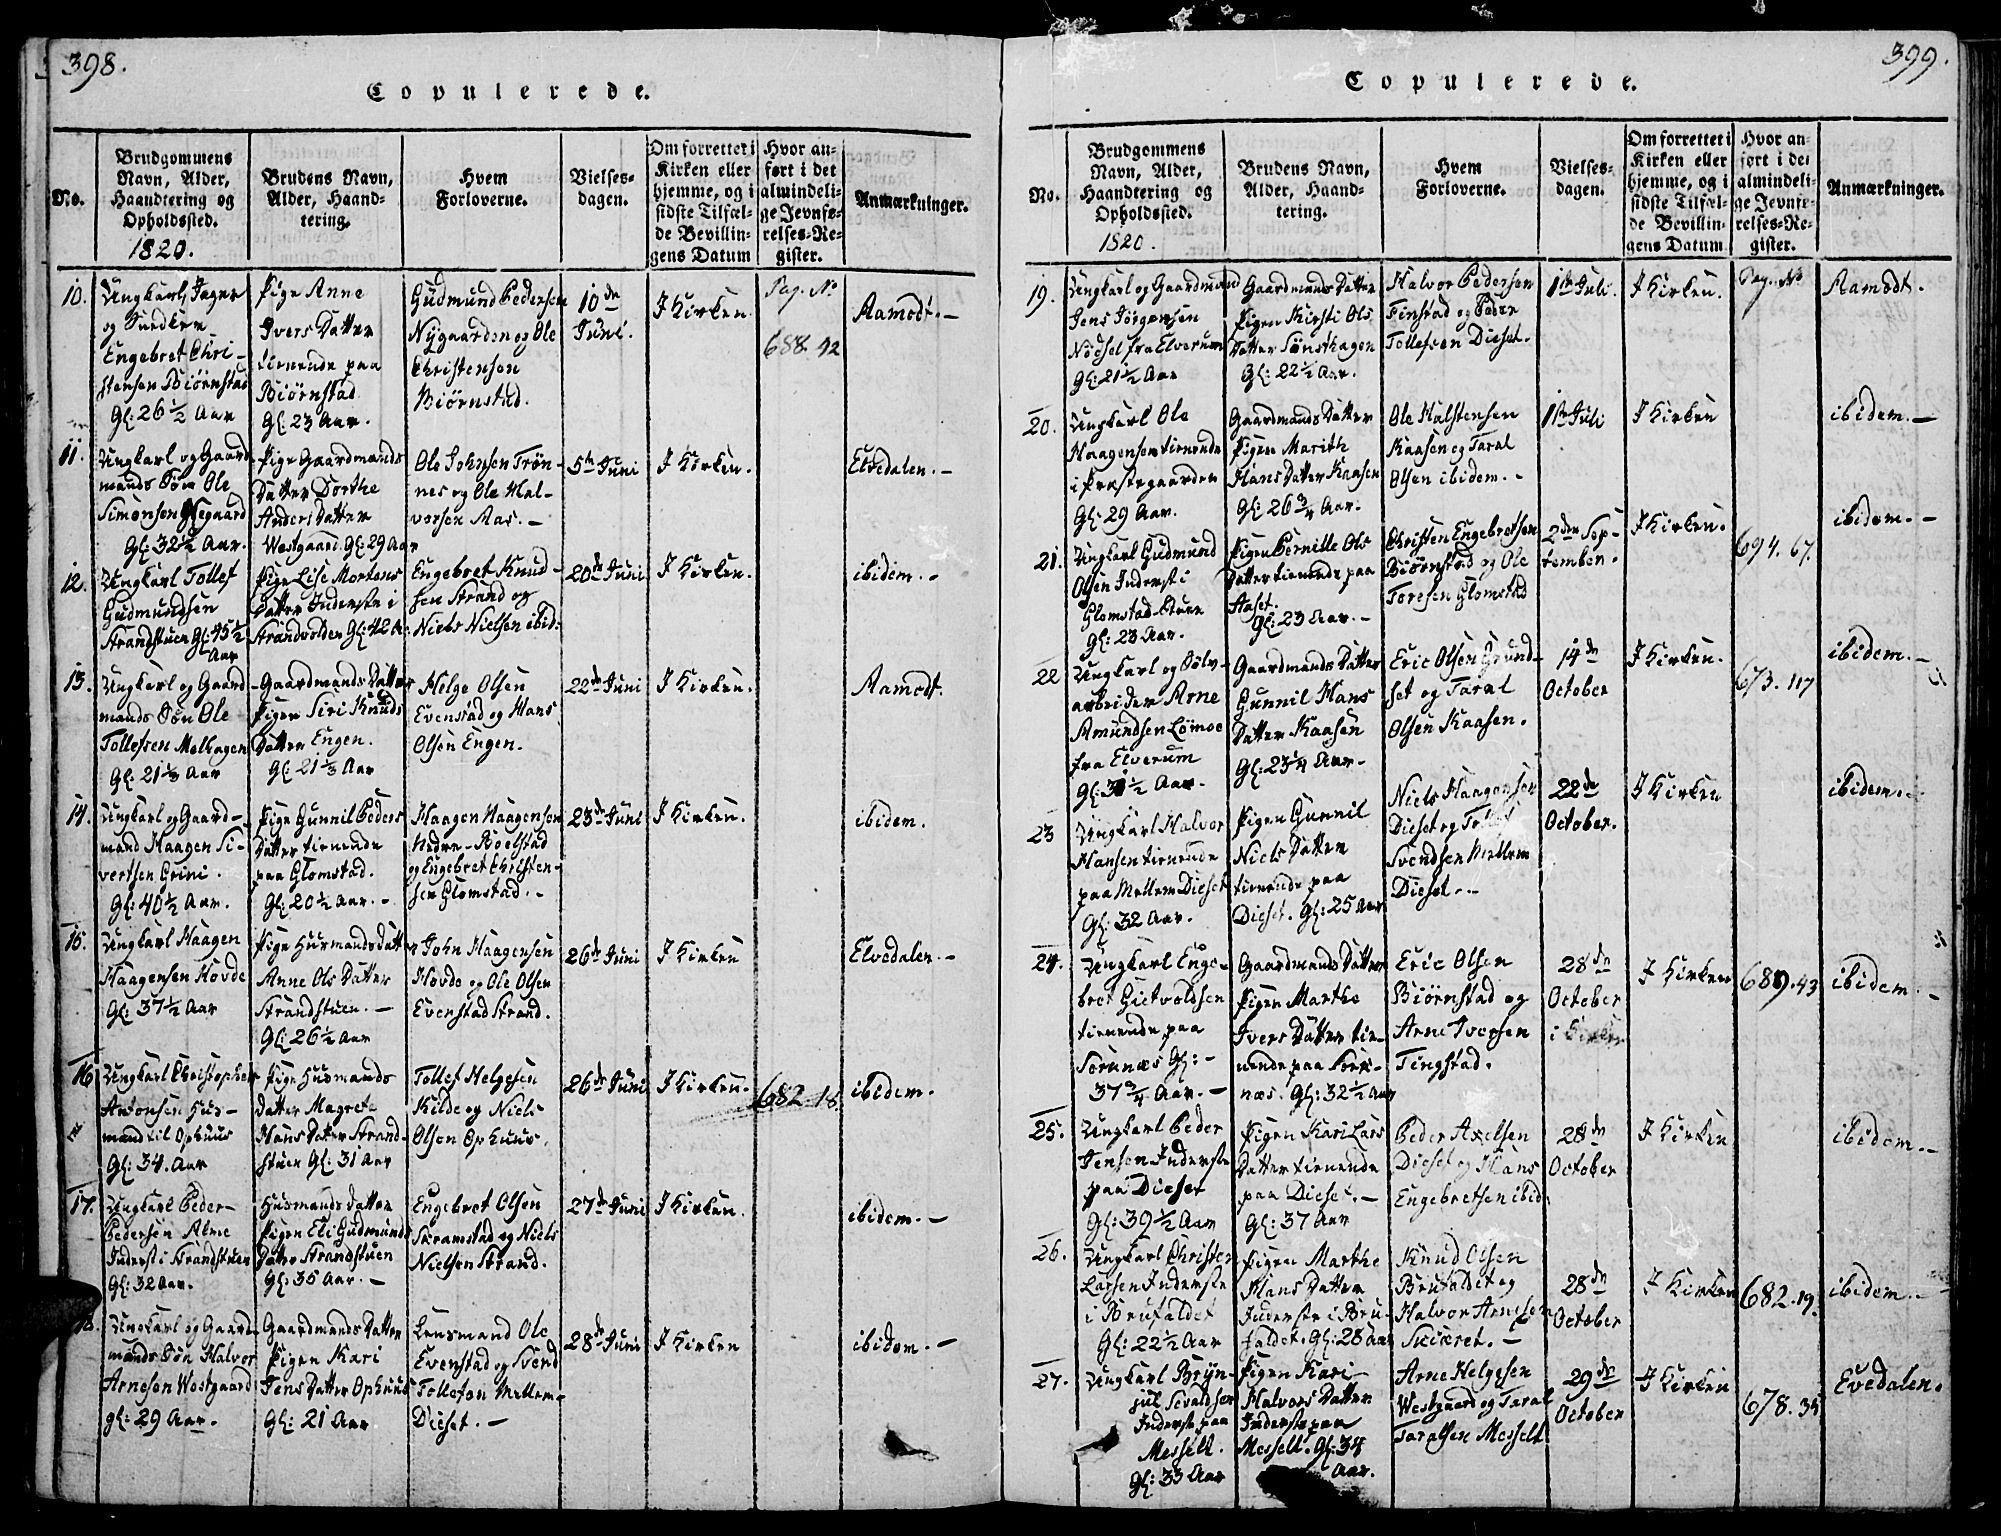 398.
Copulerede.
No.
Brudgommens
Navn, Alder,
Haandtering og
Opholdssted.
1820.
Brudens Navn,
Alder, Haand-
tering.
Hvem
Forloverne.
Vielses-
dagen.
Om forrettet i
Kirken eller
hjemme, og i
sidste Tilfæl-
de Bevillin-
gens Datum
Hvor an-
ført i det
almindeli-
ge Jevnfø-
relses-Re-
gister.
Anmærkninger.
10.
Ungkarl Jæger
og
Engebret Chri-
stensen Biörnstad
Gl: 26 1/2 Aar
Pige Anne
Ivers Datter
tienende paa
Biörnstad.
Gl: 23 Aar.
Gudmund Pedersen
Nygaarden og Ole
Christensen
Biörnstad.
10de
Juni.
I Kirken.
Pag. No
688. 42
Aamodt.-
11.
Ungkarl og Gaard
mands Sön Ole
Simonsen
Gl: 32 1/2 Aar.
Pige Gaardmands
Datter Dorthe
Anders Datter
Westgaard. Gl: 29 Aar
Ole Johnsen Trön-
nes og Ole Hal-
vorsen Aas. -
5te Juni
I Kirken.
Elvedalen.-
12.
Ungkarl Tollef
Gudmundsen
Strandstuen Gl: 45 1/2
Aar
Pige Lise Mortens
Datter Inderste i
Strandvolden Gl: 42 A:
Engebret Knud-
sen Strand og
Niels Nielsen ibid:
20de Juni
I Kirken.
ibidem.-
13.
Ungkarl og Gaard-
mands Sön Ole
Tollefsen Melhagen
Gl: 21 1/3 Aar
Gaardmands Datter
Pigen Siri Knuds
Datter Engen.
Gl: 21 1/3 Aar
Helge Olsen
Evenstad og Hans
Olsen Engen.
22de Juni
I Kirken.
Aamodt.
14.
Ungkarl og Gaard-
mand Haagen Si-
vertsen Grini.
Gl: 40 1/2 Aar.
Pige Gunnil Peders
Datter tienende
paa Glomstad.
Gl: 20 1/2 Aar.-
Haagen Haagensen
Nedre-Boelstad
og Engebret Christen-
sen Glomstad.-
23de Juni
I Kirken.
ibidem.
15.
Ungkarl Haagen
Haagensen Hovde
Gl: 37 1/2 Aar
Pige Husmands Datt
Anne Ols Datter
Strandstuen.-
Gl: 26 1/2 Aar
John Haagensen
Hovde og Ole Olsen
Evenstad Strand.
26de Juni
I Kirken
Elvedalen.-
16
Ungkarl Christopher
Antonsen Hus-
mand til Ophuus
Gl: 34. Aar
Pige Husmands
Datter Magrete
Hans Datter Strand-
stuen Gl: 31 Aar
Tollef Helgesen
Kilde og Niels
Olsen Ophuus.
26de Juni
I Kirken.
682 18
ibidem.
17.
Ungkarl Peder-
Pedersen Alme
Inderst i Strandstuen
Gl: 32 Aar.
Husmands Datter
Pigen Eli Gudmunds
Datter Strandstuen
Gl: 35 Aar.-
Engebret Olsen
Skramstad og Niels
Nielsen Strand.
27de Juni
I Kirken.
ibidem.-
18.
Ungkarl og Gaard-
mands Sön Halvor
Arnesen Westgaard
gl: 29 Aar.
Gaardmands Datter
Pigen Kari
Jens Datter Ophuus
Gl: 21 Aar
Lensmand Ole
Evenstad og Svend
Tollefsen Mellem-
Dieset.-
28de Juni
I Kirken
ibidem.-
399.
Copulerede.
No.
Brudgommens
Navn, Alder,
Haandtering og
Opholdssted.
1820.
Brudens Navn,
Alder, Haand-
tering.
Hvem
Forloverne.
Vielses-
dagen.
Om forrettet i
Kirken eller
hjemme, og i
sidste Tilfæl-
de Bevillin-
gens Datum
Hvor an-
ført i det
almindeli-
ge Jevnfø-
relses-Re-
gister.
Anmærkninger.
19.
Ungkarl og Gaardmand
Jens Jörgensen
Nödset fra Elverum
Gl: 21 1/2 Aar
Gaardmands Datter
Pigen Kirsti Ols
Datter Sönsthagen
Gl: 22 1/2 Aar.
Halvor Pedersen
Finstad og Peder
Tollefsen Dieset.
1te Juli.
I Kirken.
Pag. No
Aamodt.
20.
Ungkarl Ole
Haagensen tienende
i Præstegaarden
Gl: 29 Aar.
Gaardmands Datter
Pigen Marith
Hans Datter Kaasen
Gl: 26 3/4 Aar.
Ole Halstensen
Kaasen og Taral
Olsen ibidem.-
1te Juli
I Kirken
ibidem.-
21.
Ungkarl Gudmund
Olsen Inderst i
Glomstad-Stuen
Gl: 23 Aar.
Pigen Pernille Ols
Datter tienende paa
Aaset.
Gl: 23 Aar.-
Christen Engebretsen
Biörnstad og Ole
Toresen Glomstad
2den Sep-
tember.
I Kirken.
694. 67.
ibidem.-
22
Ungkarl og Sölv-
arbeider Arne
Amundsen Lömoe
fra Elverum
Gl: 31 1/2 Aar.
Gaardmands Datter
Gunnil Hans
Datter Kaasen
Gl: 23 1/4 Aar.-
Eric Olsen Grund-
set og Taral
Olsen Kaasen.
14de
October
I Kirken.
673. 117
ibidem.-
23
Ungkarl Halvor
Hansen tienende
paa Mellem Dieset
Gl: 32 Aar.
Pigen Gunnil
Niels Datter
tienende paa
Dieset. Gl: 25 Aar
Niels Haagensen
Dieset og Tollef
Svendsen Mellem
Dieset.-
22de
October.
I Kirken
ibidem.-
24.
Ungkarl Enge-
bret Gietvoldsen
tienende paa
Sorknæs Gl:-
37 3/4 Aar.-
Gaardmands Datter
Pigen Marthe
Ivers Datter tie-
nende paa Sork-
næs. Gl: 32 1/2 Aar
Eric Olsen
Biörnstad og
Arne Iversen
Tingstad.
28de
October
i Kirken
I Kirken
689. 43
ibidem.-
25.
Ungkarl Peder
Jensen Inderste
paa Dieset
Gl: 39 1/2 Aar
Pigen Kari Lars
Datter tienende
paa Dieset.-
Gl: 37 Aar
Peder Axelsen
Dieset og Hans
Engebretsen ibid.
28de
October
I Kirken
ibidem.-
26.
Ungkarl Christen
Larsen Inderste
i Brufaldet
Gl: 22 1/2 Aar
Pigen Marthe
Hans Datter
Inderste i Bru-
faldet. Gl: 28 Aar
Knud Olsen
Brufaldet og
Halvor Arnesen
Skiæret.-
28de
October
I Kirken
682. 19.
ibidem.-
27.
Ungkarl Bryn-
jul Sevaldsen
Inderst paa
Messelt.
Gl: 33 Aar
Pigen Kari
Halvors Datter
Inderste paa
Messelt. Gl: 34
Aar.
Arne Helgesen
Westgaard og Taral
Taralsen Messelt
29de
October
I Kirken
678. 35
Evedalen.